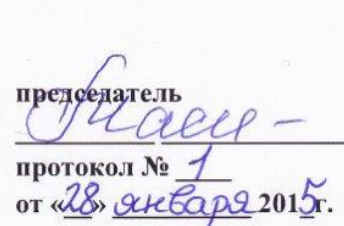 председатель
протокол № 1
от «28» января 2015г.